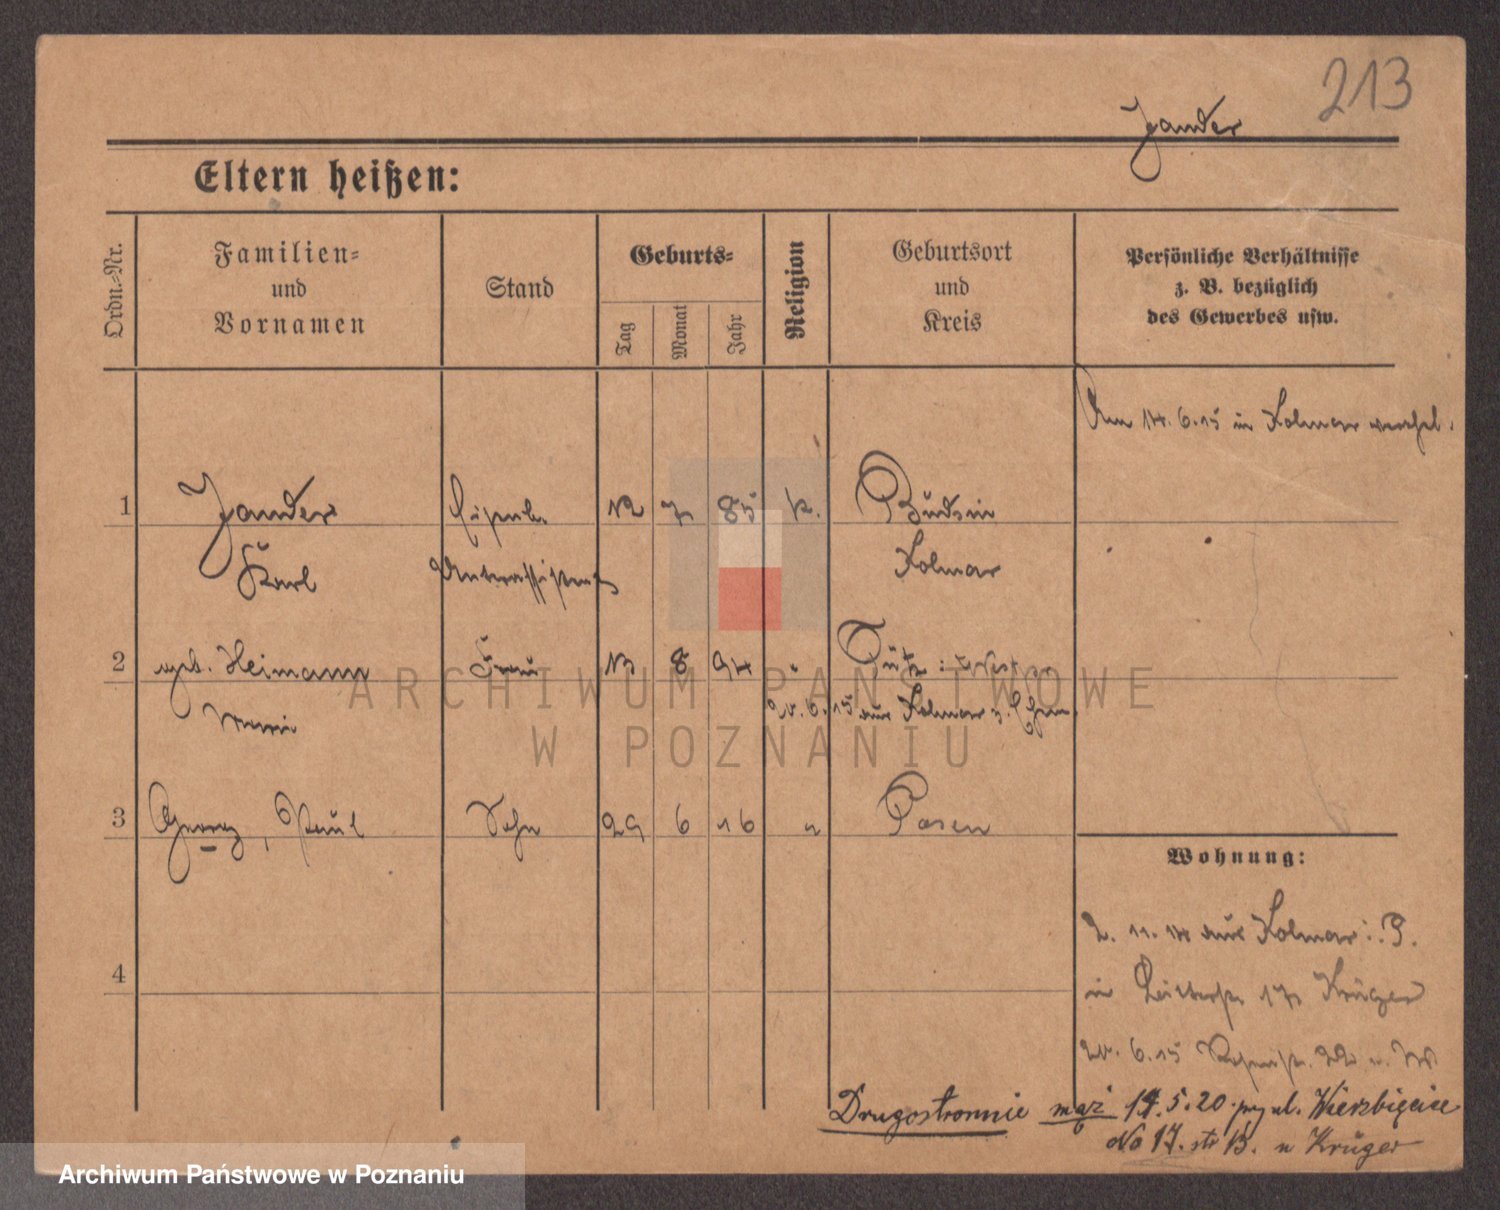 213
Jander
Eltern heißen:
Ordn.-Nr.
Familien-
und
Vornamen
Stand
Geburts-
Tag
Monat
Jahr
Religion
Geburtsort
und
Kreis
Persönliche Verhältnisse
z. B. bezüglich
des Gewerbes usw.
Am 14.6.15 in Kolmar
1 Jander 12 7 85 k. Budsin
Karl Kolmar
2 geb. Heimann Frau 13 8 94 " Tütz i. West
Marie 20.6.15 aus Kolmar
3 Georg, Paul Sohn 29 6 16 " Posen
Wohnung:
2. 11. 14 aus Kolmar i. P.
in 17 Krüger
4
20. 6. 15
Drugostronnie mąż 14.5.20 ul. Wierzbięcice
No 17. str B. u Krüger
ARCHIWUM PAŃSTWOWE
W POZNANIU
Archiwum Państwowe w Poznaniu